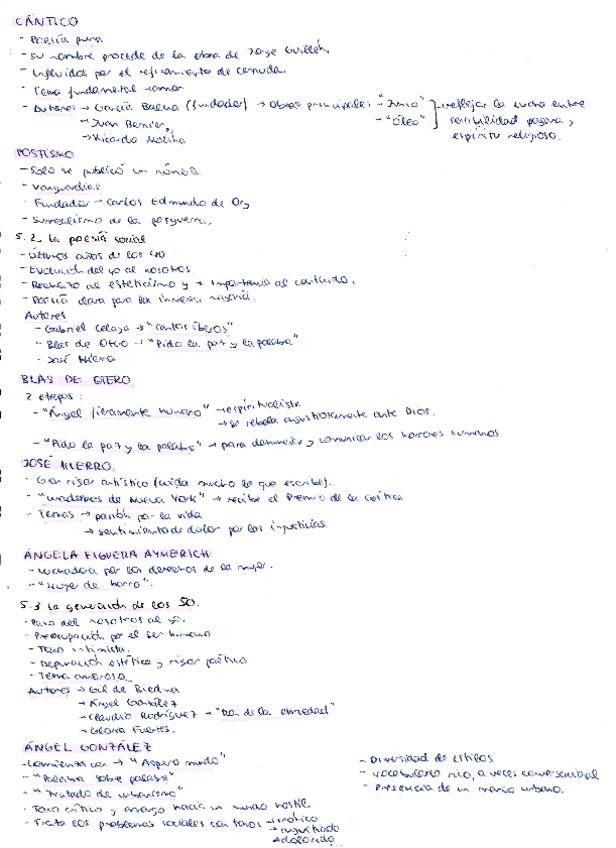 CÁNTICO
- Poesía pura
- Su nombre procede de la obra de Jorge Guillén.
- Influidos por el refinamiento de Cernuda.
- Tema fundamental → amor
- Autores → García Baena (fundador) → obras principales: - "Junio" - "Óleo" } → reflejar la lucha entre sensibilidad pagana y espíritu religioso.
→ Juan Bernier,
→ Ricardo Molina
POSTISMO
- Solo se publicó un número.
- Vanguardias
- Fundador → Carlos Edmundo de Ory
- Surrealismo de la posguerra.
5.2 La poesía social
- Últimos años de los 40
- Evolución del yo al nosotros
- Rechazo al esteticismo y + importancia al contenido.
- Poesía clara para la inmensa mayoría.
Autores
- Gabriel Celaya → "Cantos íberos"
- Blas de Otero → "Pido la paz y la palabra"
- José Hierro
BLAS DE OTERO
2 etapas:
- "Ángel fieramente humano" → espiritualista
→ se rebela angustiosamente ante Dios.
- "Pido la paz y la palabra" → para denunciar y comunicar los horrores humanos
JOSÉ HIERRO
- Gran rigor artístico (cuida mucho lo que escribe).
- "Cuadernos de Nueva York" → recibe el Premio de la Crítica
- Temas → pasión por la vida
→ sentimiento de dolor por las injusticias.
ÁNGELA FIGUERA AYMERICH
- Luchadora por los derechos de la mujer.
- "Mujer de barro".
5.3 La generación de los 50.
- Paso del nosotros al yo.
- Preocupación por el ser humano
- Tono intimista.
- Depuración estética y rigor poético
- Tema amoroso.
Autores → Gil de Biedma
→ Ángel González
→ Claudio Rodríguez → "Don de la ebriedad"
→ Gloria Fuertes.
ÁNGEL GONZÁLEZ
- Comienza con → "Áspero mundo"
- "Palabra sobre palabra"
- "Tratado de urbanismo"
- Tono crítico y amargo hacia un mundo hostil.
- Trata los problemas sociales con tonos → irónico
→ angustiado
→ dolorido
- Diversidad de estilos
- Vocabulario rico, a veces conversacional
- Presencia de un marco urbano.